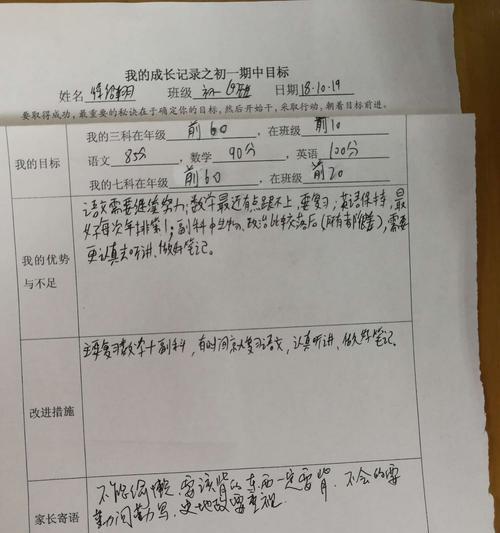 我的成长记录之初一期中目标
姓名 班级 初一 班 日期 18.10.19
要取得成功,最重要的秘诀在于确定你的目标,然后开始干,采取行动,朝着目标前进。
我的目标
我的三科在年级 前60 ,在班级 前10
语文 85分 ,数学 90分 ,英语 100分
我的七科在年级 前60 ,在班级 前20
我的优势与不足
语文需要继续努力;数学最近有点跟不上,要复习;英语保持,最
好每次年排第1;副科中生物、政治比较落后(所有都隆),需要
更认真去听讲、做好笔记。
改进措施
主要复习数学十副科,有时间就复习语文,认真听讲、做好笔记。
家长寄语
不能偷懒,要该背的东西一定要背,不会的要
勤问勤写,史地政要重视